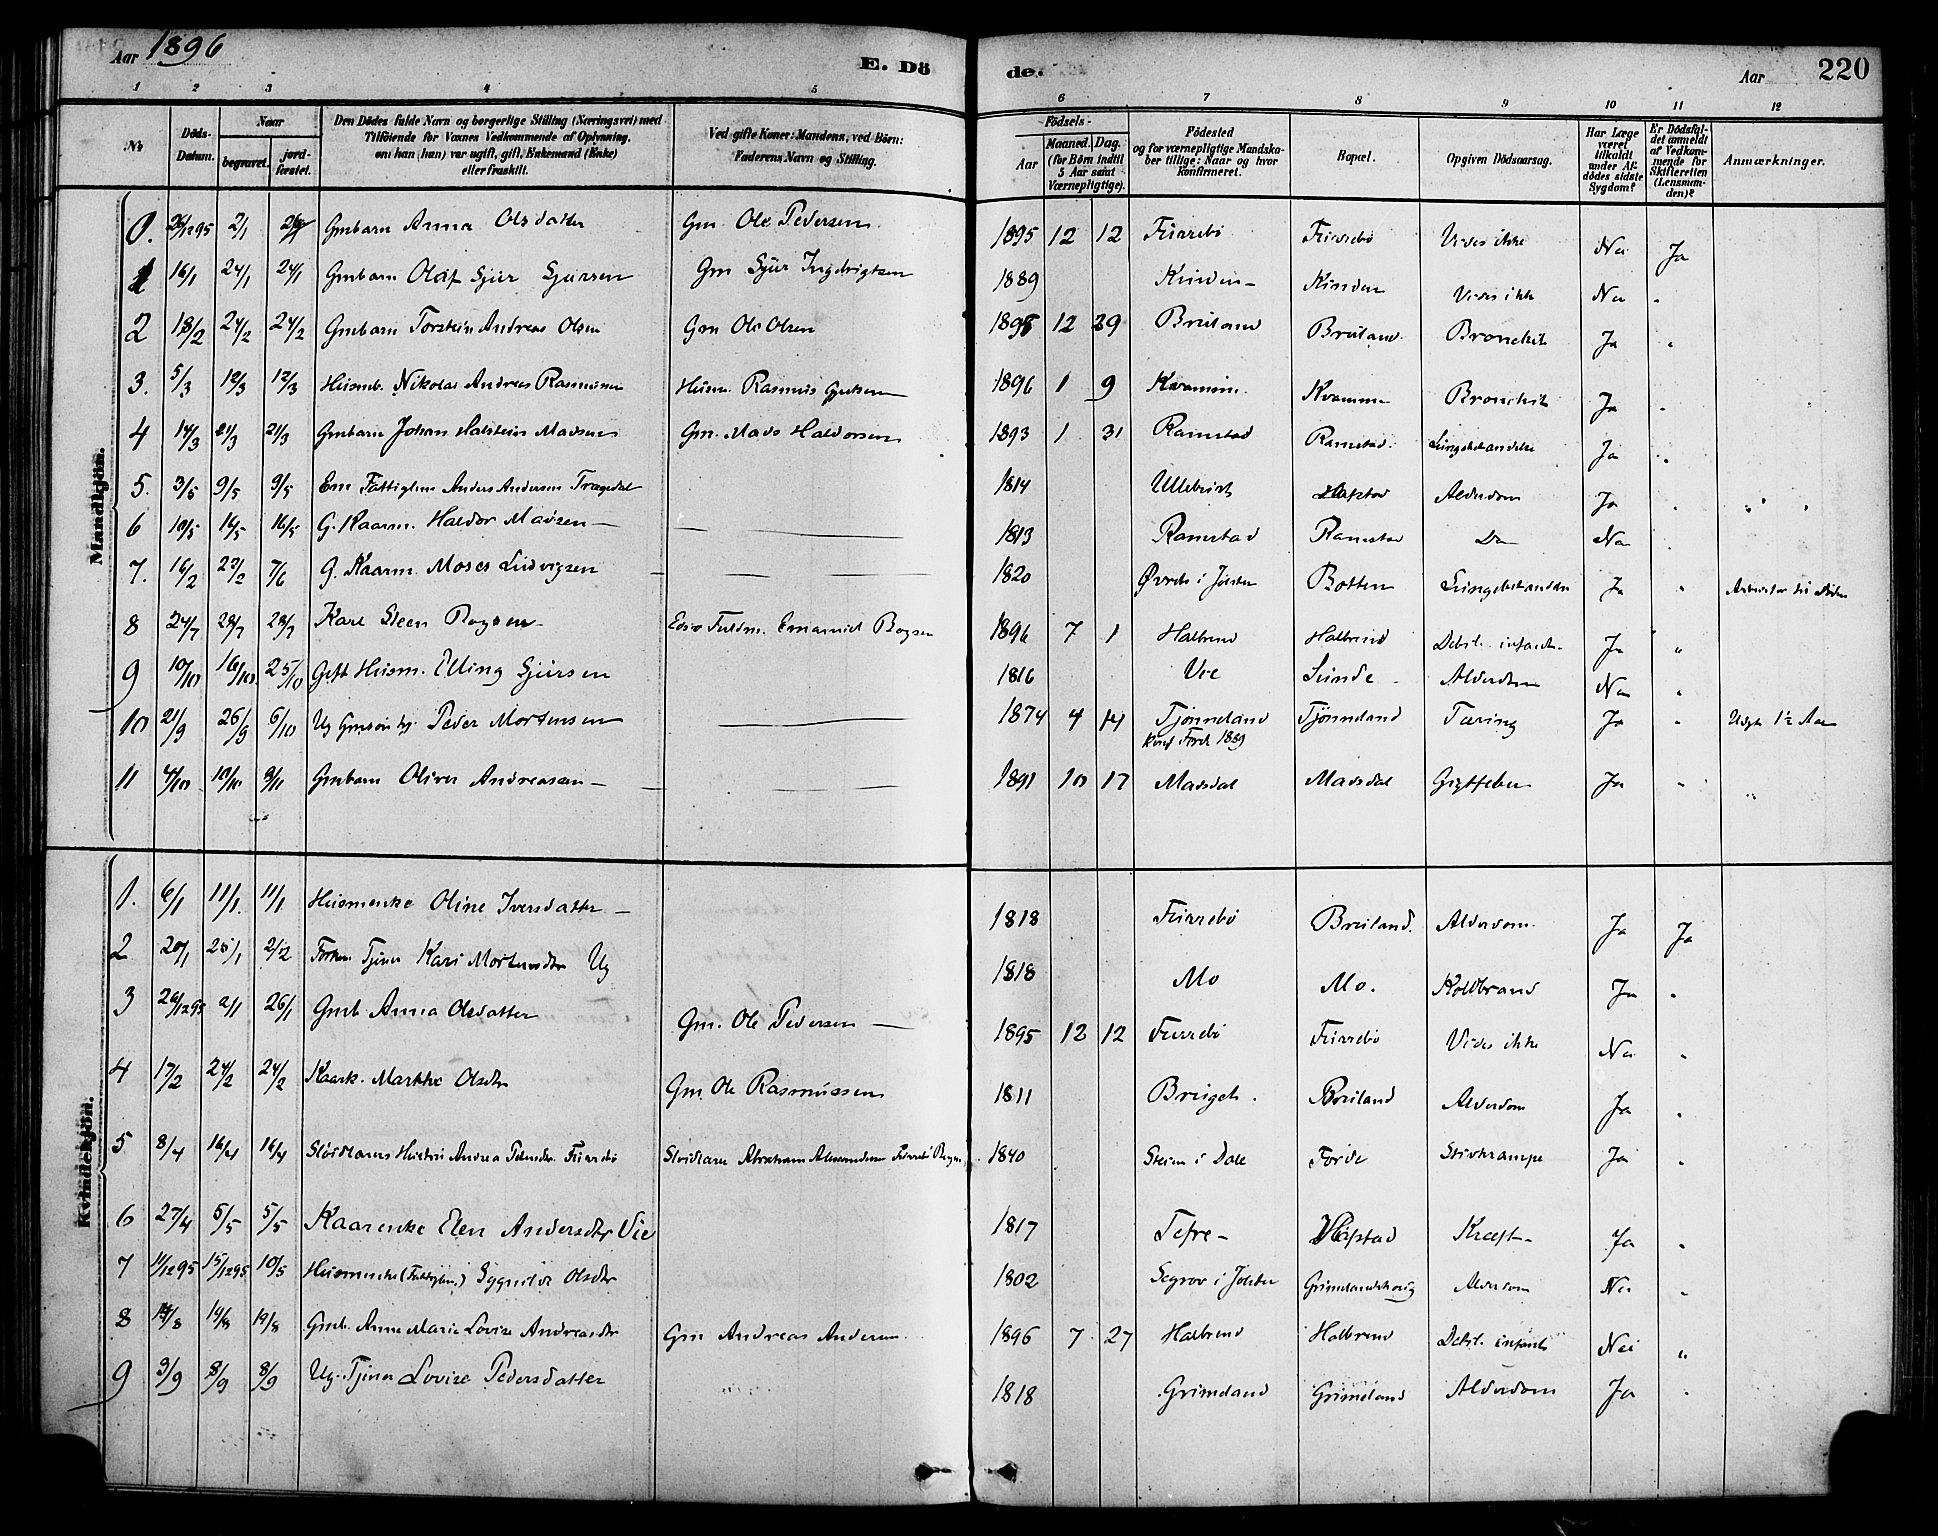 Aar 1896 E. Dö de. Aar 220
1 2 3 4 5 6 7 8 9 10 11 12
No Döds-Datum. Naar begravet. jord-fæstet. Den Dödes fulde Navn og borgerlige Stilling (Næringsvei) med Tilföiende for Voxnes Vedkommende af Oplysning, om han (hun) var ugift, gift, Enkemand (Enke) eller fraskilt. Ved gifte Koner: Mandens, ved Börn: Faderens Navn og Stilling. Födsels- Aar Maaned. Dag. (for Börn indtil 5 Aar samt Værnepligtige). Födested og for værnepligtige Mandska-ber tillige: Naar og hvor konfirmeret. Bopæl. Opgiven Dödsaarsag. Har Læge været tilkaldt under Af-dödes sidste Sygdom? Er Dödsfal-det anmeldt af Vedkom-mende for Skifteretten (Lensman-den)? Anmærkninger.
Mandkjön.
0. 26/12 95 2/1 Gmbarn Anna Olsdatter Gm Ole Pedersen 1895 12 12 Furrebö Furrebö Vides ikke Nei Ja
1 16/1 24/1 24/1 Gmbarn Olaf Sjur Sjursen Gm Sjur Ingebrigtsen 1889 Kinden Vides ikke Nei "
2 18/2 24/2 24/2 Gmbarn Torstein Andreas Olsen Gm Ole Olsen 1895 12 29 Bruland Bruland. Bronchit Ja "
3. 5/3 12/3 12/3 Husmb. Nikolai Andreas Rasmussen Husm. Rasmus 1896 1 9 Kvammen. Kvammen Bronchit Ja "
4 14/3 21/3 21/3 Gmbarn Johan Halstein Madsen Gm. Mads Haldorsen 1893 1 31 Ramstad Ramstad. Lungebetændelse Ja "
5. 3/5 9/5 9/5 Em Fattiglem Anders Andersen Trægedal 1814 Hafstad Alderdom Ja " " "
6 10/5 16/5 16/5 G. Kaarm. Haldor Madsen 1813 Ramstad Ramstad Do Nei "
7. 16/2 22/2 7/6 G. Kaarm Moses Ludvigsen 1820 i Jölster Botten Lungebetændelse Ja "
8 24/7 28/7 28/7 Karl Steen Bogsen Emanuel Bogsen 1896 7 1 Halbrend Halbrend Debil. infant. Ja "
9 10/10 16/10 25/10 Gift Husm. Elling Sjursen 1816 Vie Sunde Alderdom Nei "
10 21/9 26/9 6/10 Ug Gmsön Peder Mortensen 1874 4 14 Tjönneland Tjönneland Tæring Ja " 1½ Aar
Konf. Förde 1889
11 4/10 10/10 8/11 Gmbarn Oliver Andreassen 1891 10 17 Madsdal Madsdal Gigtfeber Ja " "
Kvindekjön.
1. 6/1 11/1. 11/1. Husmenke Oline Iversdatter 1818 Furrebö Bruland. Alderdom. Ja Ja
2 20/1 2/2 Tjener Kari Mortensdtr Ug 1818 Mo Mo. Koldbrand Ja "
3 26/12 95 2/1 26/1 Gmb. Anna Olsdatter Gm. Ole Pedersen 1895 12 12 Furrebö Furrebö Vides ikke Nei "
4 17/2 24/2 24/2 Kaark. Marthe Olsdtr Gm. Ole Rasmussen 1811 Bruland Alderdom Ja "
5 8/4 16/4 16/4 Hustru Andrea Furrebö Abraham 1840 Steien i Dale Förde Stivkrampe Ja "
6 27/4 5/5 5/5 Kaarenke Elen Andersdtr Vie 1817 Tefre Hafstad Kræft Ja "
7 11/12 95 15/12 95 10/5 Husmenke (Fattiglem) Sygnilda Olsdtr 1802 Segrov i Jölster Grimelandshoug Alderdom Nei "
8 14/8 19/8 19/8 Gmb. Anne Marie Lovise Andreasdtr Gm Andreas Andersen 1896 7 27 Halbrend Halbrend Debil. infantil Nei "
9 3/9 8/9 8/9 Ug. Tjener Lovise Pedersdatter 1818 Grimeland Grimeland Alderdom Ja "